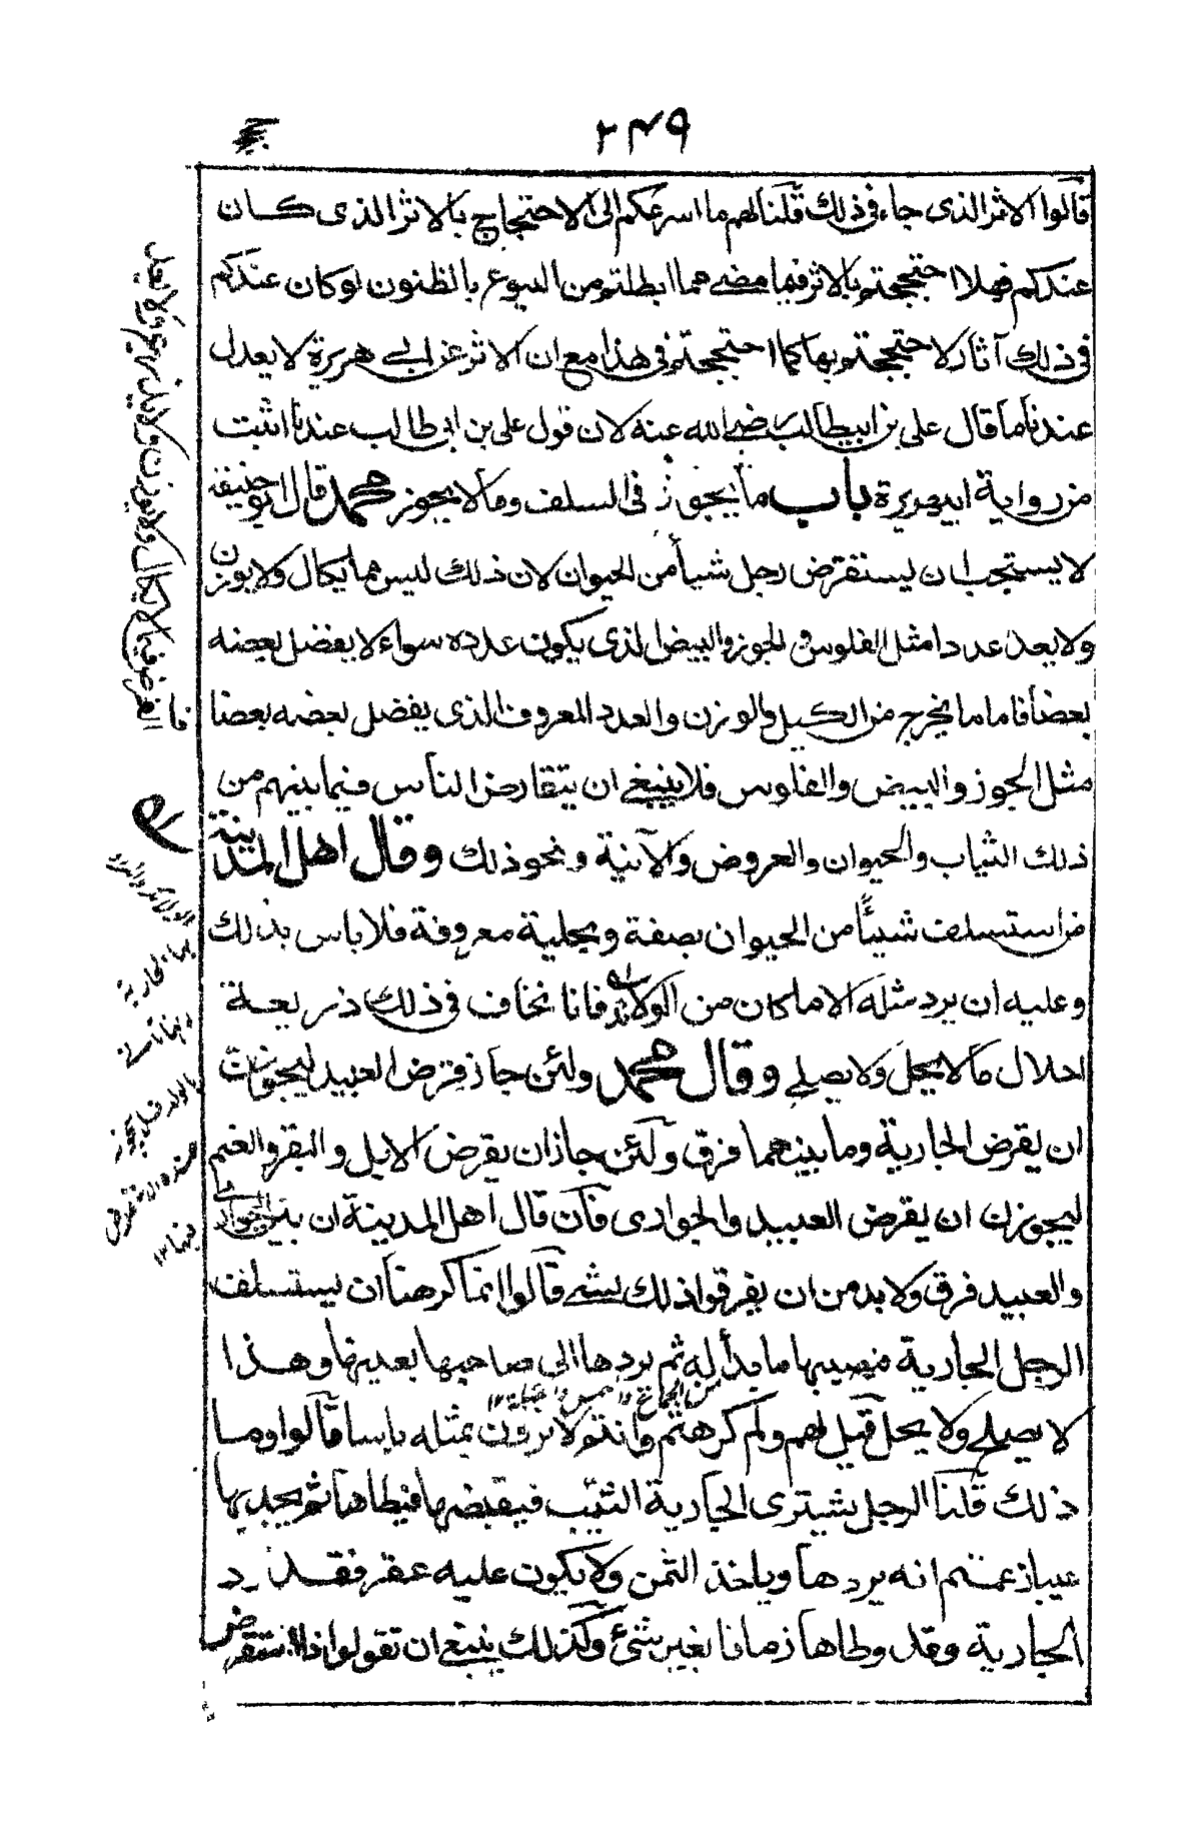 ٢٤٩
قالوا الاثر الذى جاء فى ذلك قلنا لهم ما اسرعكم الى الاحتجاج بالاثر الذى كان
عندكم فهلا احتججتم بالاثر فيما مضى مما ابطلتم من البيوع بالظنون لو كان عندكم
فى ذلك آثار لاحتججتم بها كما احتججتم فى هذا مع ان الاثر عن ابى هريرة لا يعدل
عندنا ما قال على بن ابيطالب رضى الله عنه لان قول على بن ابى طالب عندنا اثبت
من رواية ابيهريرة باب ما يجوز فى السلف وما لا يجوز محمد قال ابو حنيفة
لا يستحب ان يستقرض رجل شيأ من الحيوان لان ذلك ليس مما يكال ولا يوزن
ولا يعد عددا مثل الفلوس و الجوز والبيض الذى يكون عدده سواء لا يفضل بعضه
بعضا فاما ما يخرج من الكيل والوزن والعدد المعروف الذى يفضل بعضه بعضا
مثل الجوز والبيض والفلوس فلا ينبغى ان يتقارض الناس فيما بينهم من
ذلك الثياب والحيوان والعروض والآنية ونحو ذلك وقال اهل المدينة
من استسلف شيئا من الحيوان بصفة وبحلية معروفة فلا باس بذلك
وعليه ان يرد مثله الا ما كان من الولائد فانا نخاف فى ذلك ذريعة
احلال ما لا يحل ولا يصلح وقال محمد ولئن جاز قرض العبيد ليجوزن
ان يقرض الجارية وما بينهما فرق ولئن جاز ان يقرض الابل والبقر والغنم
ليجوزن ان يقرض العبيد والجوارى فان قال اهل المدينة ان بين الجوارى
والعبيد فرق ولا بد من ان يفرقوا ذلك بشئ قالوا انما كرهنا ان يستسلف
الرجل الجارية فيصيبها ما بدأ له ثم يردها الى صاحبها بعينها وهذا
لا يصلح ولا يحل قيل لهم ولم كرهتم وانتم لا ترون بمثله باسا قالوا وما
ذلك قلنا الرجل يشترى الجارية الثيب فيقبضها فيطاها ثم يجد بها
عيبا زعمتم انه يردها وياخذ الثمن ولا يكون عليه عقر فقد رد
الجارية وقد وطاها زمانا بغير شئ وكذلك ينبغى ان تقولوا اذا استقرض